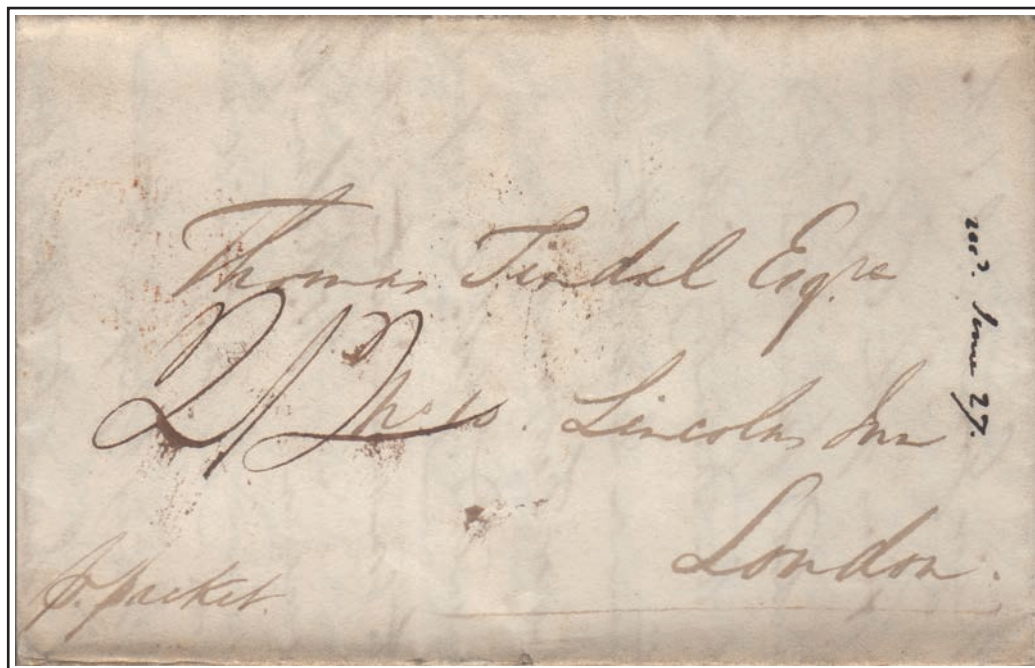 Thomas Tindal Esqre
2/2
Lincolns Inn
London.
p. packet.
recd. June 27.